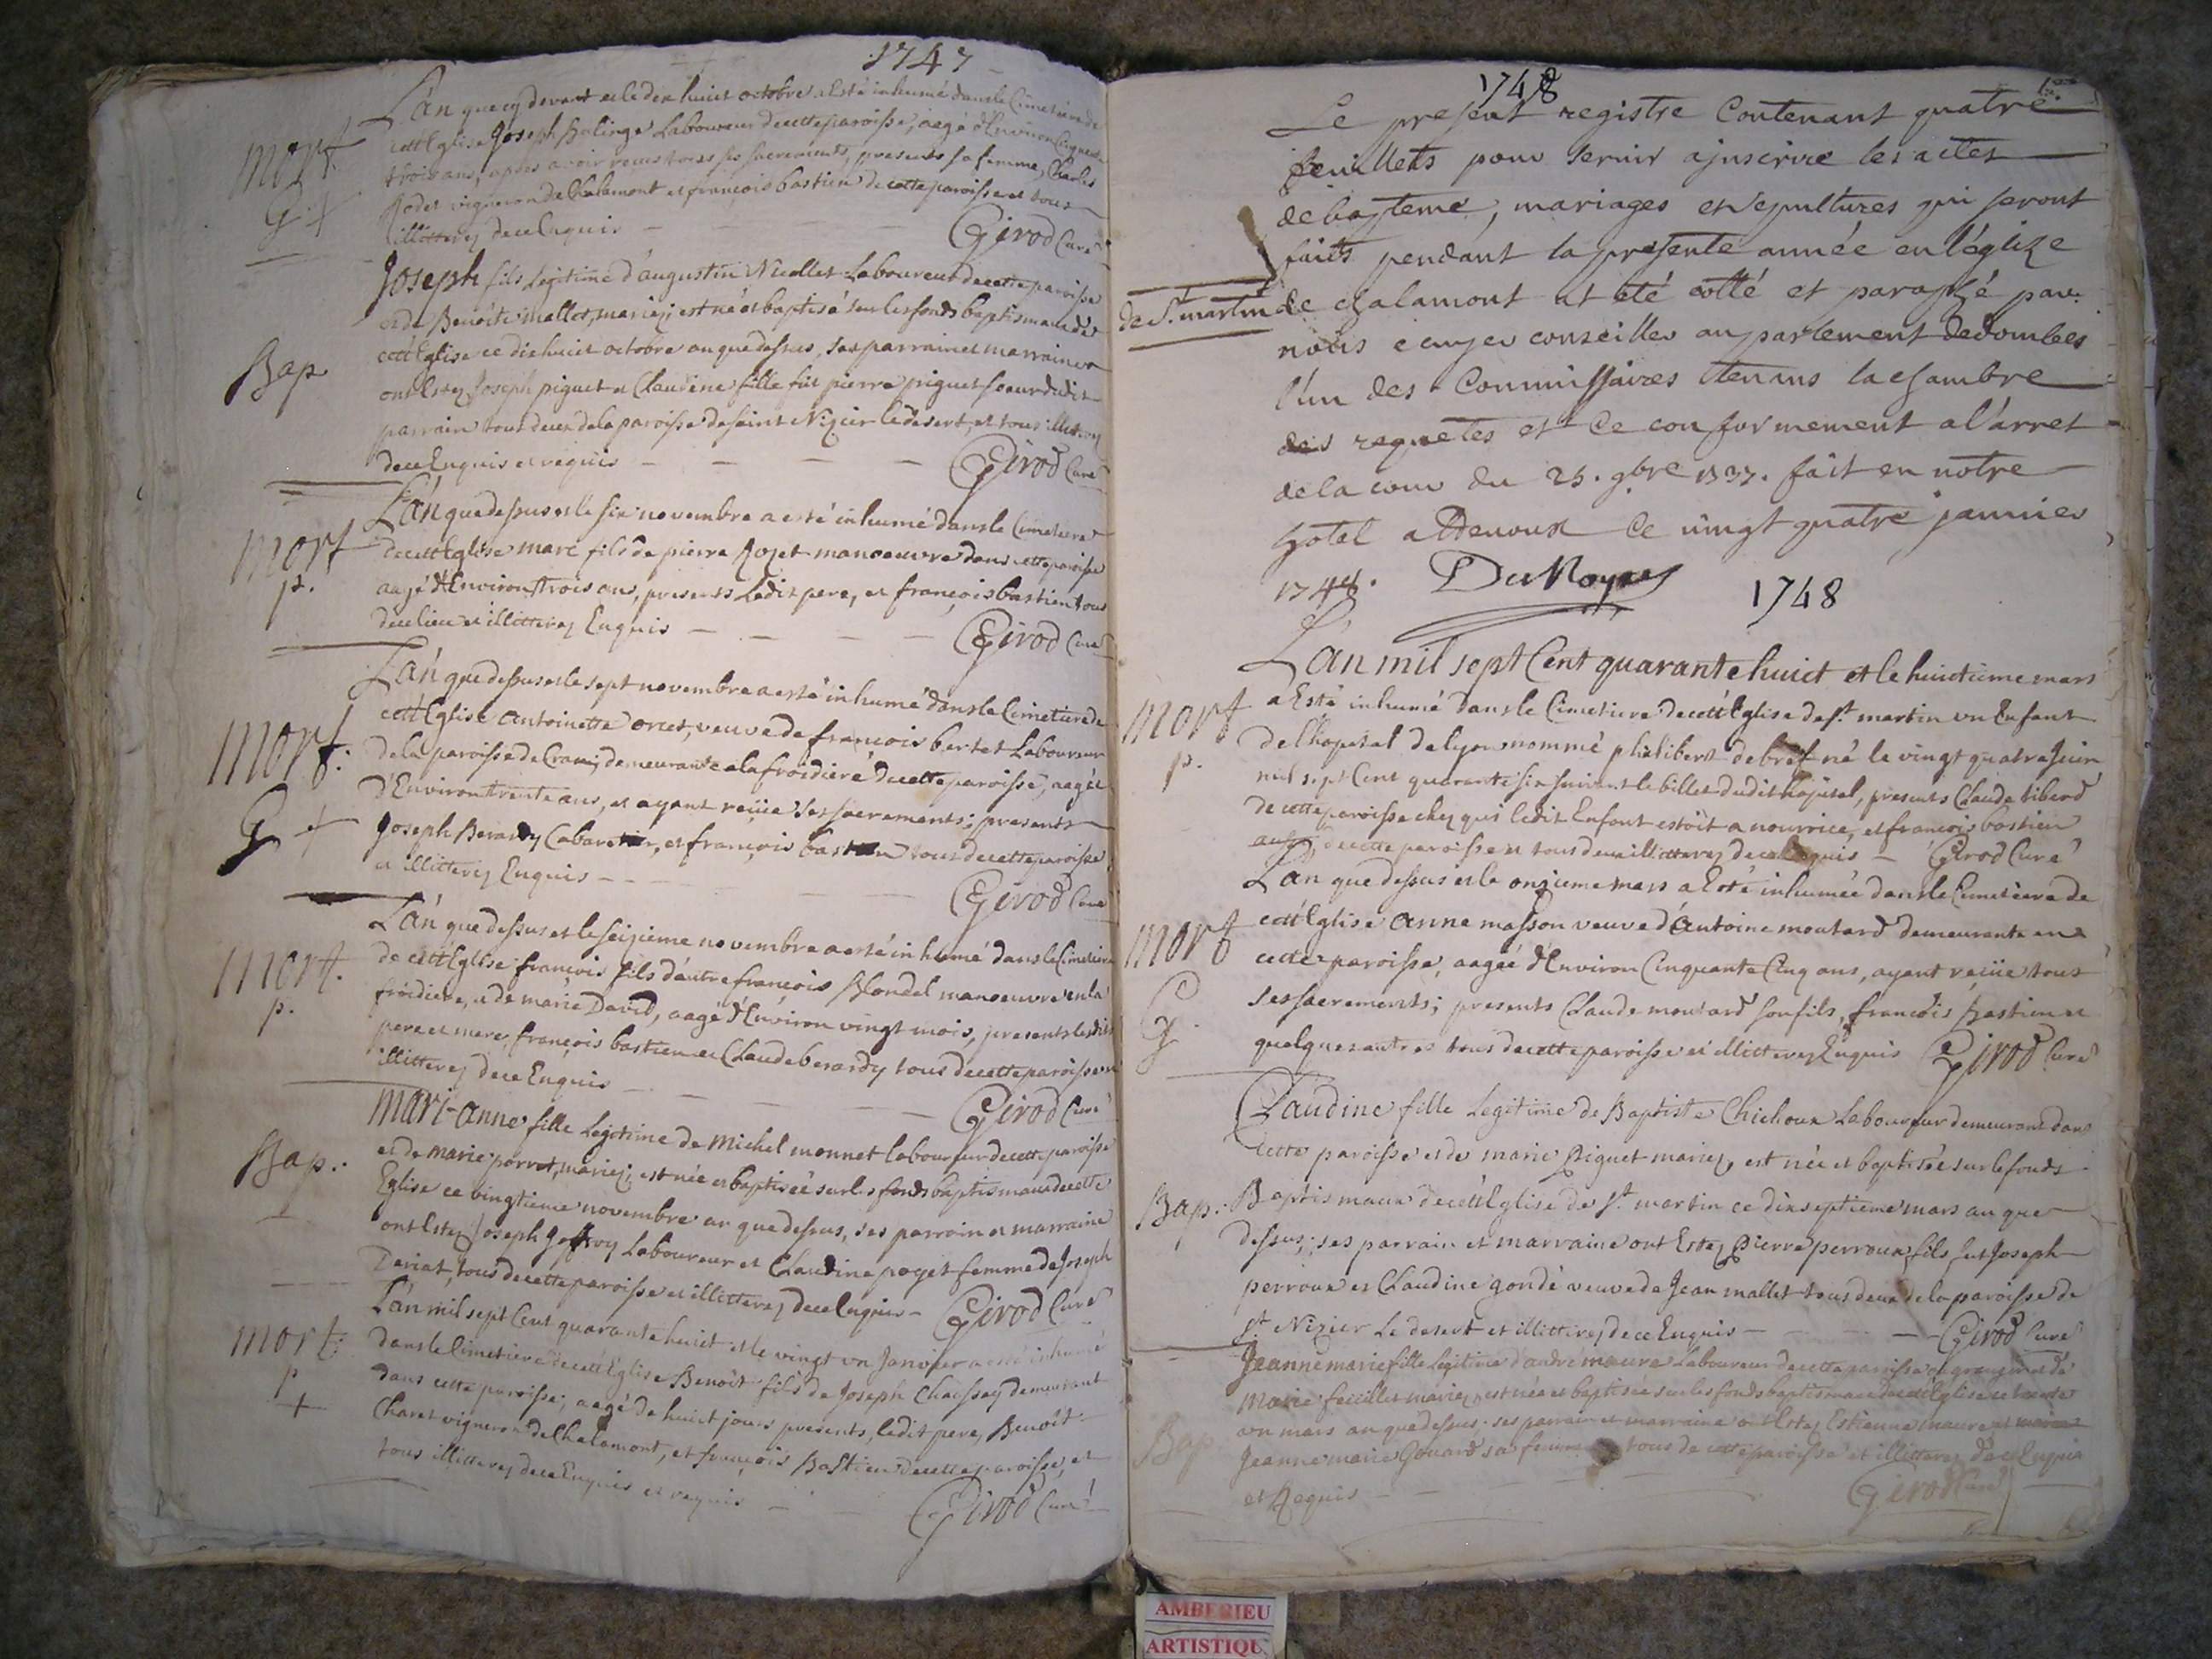 1747
L'an que cy devant et le dix huict octobre a Esté inhumé dans le Cimetiere de
mort. cett Eglise Joseph Laboureur de cette paroisse, aagé d'Environ Cinquante
G + trois ans, apres avoir receu tous ses sacrements, presents sa femme, Charles
vigneron de Chalamont et françois bastien de cette paroisse et tous
illitterez de ce Enquis
Girod Curé
Joseph fils Legitime d'augustin Nicollet Laboureur de cette paroisse
et de Benoîte mallet, mariez; est né et baptisé sur les fonds baptismaux de
Bap. cett Eglise ce dix huict octobre an que dessus, ses parrain et marraine
ont Estez Joseph piguet et Claudine fille fût pierre piguet soeur dudit
parrain tous deux de la paroisse de saint Nizier le desert, et tous illitterez
de ce Enquis et requis Girod Curé
L'an que dessus et le six novembre a esté inhumé dans le Cimetiere
mort de cett Eglise marc fils de pierre Rozet manoeuvre dans cette paroisse
p. aagé d'Environ trois ans, presents Ledit pere, et françois bastien tous
de ce lieu et illitterez Enquis
Girod Curé
L'an que dessus et le sept novembre a esté inhumé dans le Cimetiere de
mort. cett Eglise Antoinette orcet, veuve de françois bertet Laboureur
de la paroisse de Crans demeurante a la froidiere de cette paroisse, aagée
G + d'Environ trente ans, et ayant reçüe ses sacrements; presents
Joseph Berardy Cabaretier, et françois bastien tous de cette paroisse
et illitterez Enquis
Girod Curé
L'an que dessus et le seizieme novembre a esté inhumé dans le Cimetiere
mort. de cett Eglise françois fils d'autre françois Blondel manoeuvre en la
p. froidiere, et de marie David, aagé d'Environ vingt mois, presents lesdits
pere et mere, françois bastien et Claude berardy tous de cette paroisse et
illitterez de ce Enquis
Girod Curé
Mari-anne fille Legitime de Michel monnet laboureur de cette paroisse
Bap. et de marie porret, mariez; est née et baptisée sur les fonds baptismaux de cette
Eglise ce vingtieme novembre an que dessus, ses parrain et marraine
ont Estez Joseph Joffroy Laboureur et Claudine poget femme de Joseph
Deriat, tous de cette paroisse et illitterez de ce Enquis - Girod Curé
L'an mil sept Cent quarante huict et le vingt un Janvier a esté inhumé
mort. dans le Cimetiere de cett Eglise Benoît fils de Joseph Chaissey demeurant
p dans cette paroisse; aagé de huict jours presents, ledit pere, Benoît
+ Charet vigneron de Chalamont, et françois Bastien de cette paroisse, et
tous illitterez de ce Enquis et requis
Girod Curé
1748
Le present registre Contenant quatre
feuillets pour servir a inscrire les actes
de bapteme, mariages et sepultures qui seront
faits pendant la presente année en l'église
de St. martin de chalamont at été cotté et paraphé par
nous ecuyer conseiller au parlement de dombes
l'un des Commissaires tenans la chambre
des requetes et ce conformement a l'arret
de la cour du 25. 9bre 1737. fait en notre
hotel a trevoux ce vingt quatre janvier
1748. DuNoyer 1748
L'an mil sept Cent quarante huict et le huictieme mars
mort a Esté inhumé dans le Cimetiere de cett Eglise de st martin un Enfant
p. de l'hopital de lyon nommé philibert debref né le vingt quatre Juin
mil sept Cent quarante six suivant le billet dudit hopital, presents Claude tiberd
de cette paroisse chez qui ledit Enfant estoit a nourrice, et francois bastien
aussy de cette paroisse et tous deux illitterez de ce Enquis - Girod Curé
L'an que dessus et le onzieme mars a Esté inhumée dans le Cimetiere de
mort cett Eglise Anne masson veuve d'Antoine moutard demeurante en
cette paroisse, aagée d'Environ Cinquante Cinq ans, ayant reçüe tous
G. ses sacrements; presents Claude moutard son fils, francois bastien et
quelques autres tous de cette paroisse et illitterez Enquis Girod Curé
Claudine fille Legitime de Baptiste Chichoux Laboureur demeurant dans
cette paroisse et de marie Piguet mariez, est née et baptisée sur le fonds
Bap. Baptismaux de cett Eglise de st martin ce dix septieme mars an que
dessus; ses parrain et marraine ont Estez Pierre perroux fils fut Joseph
perroux et Claudine gondé veuve de Jean mallet tous deux de la paroisse de
st Nizier Le desert et illitterez de ce Enquis - Girod Curé
Jeanne marie fille Legitime d'andré maure Laboureur de cette paroisse et de
Marie feüillet mariez, est née et baptisée sur les fonds baptismaux de cett Eglise ce trente
Bap un mars an que dessus; ses parrain et marraine ont Estez Estienne maure et marie
Jeanne marie Gouard sa femme tous de cette paroisse et illitterez de ce Enquis
et Requis
Girod Curé
AMBERIEU
ARTISTIQU